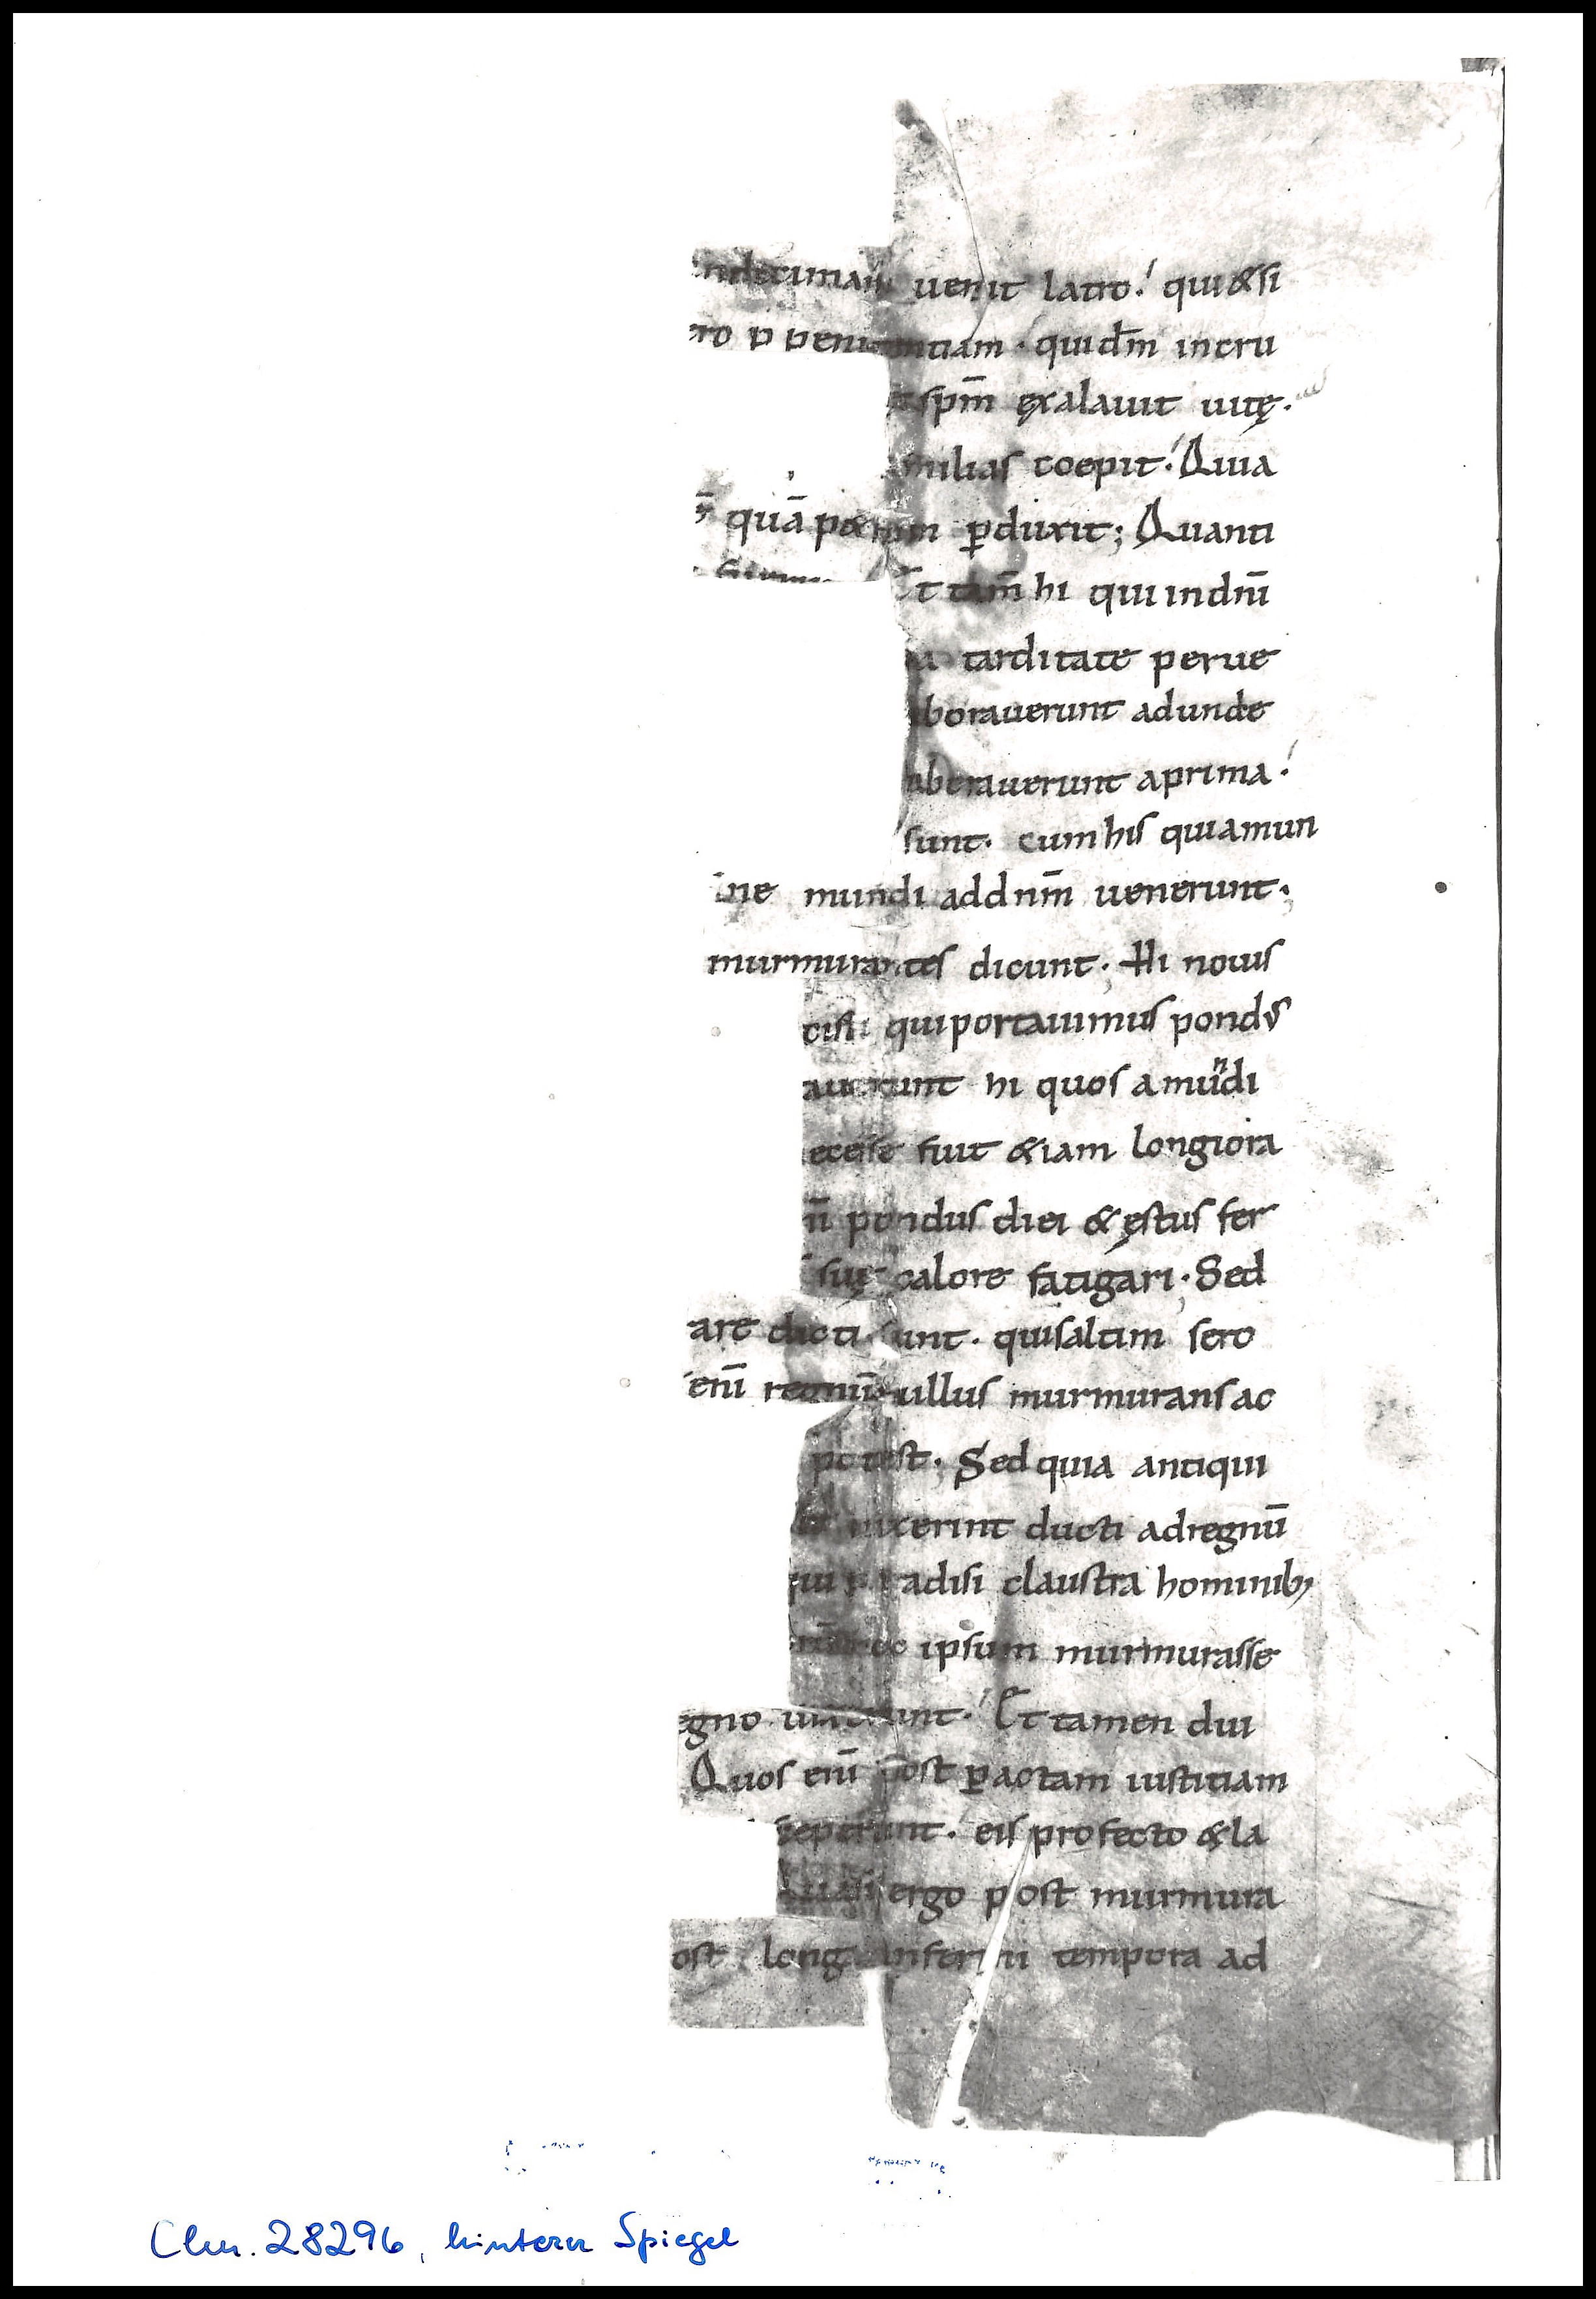 undecimam uenit latro. qui & si
ero p penitentiam. qui dm̄ in cru
spm̄ exalauit uitę.
milias coepit. Quia
quā p&rum ꝑduxit; Quanti
t tam̄ hi qui in dnī
a tarditate perue
borauerunt ad unde
aborauerunt a prima.
sunt. cum his qui a mun
ne mundi ad dnm̄ uenerunt;
murmurantes dicunt; Hi nouis
cisti qui portauimus pondus
auerunt hi quos a mundi
ecesse fuit &iam longiora
pondus diei & ęstus fer
suę calore fatigari; Sed
are dicti sunt. qui saltim sero
enī regnū nullus murmurans ac
potest; Sed quia antiqui
uixerint ducti ad regnū
qui paradisi claustra hominib;
hoc ipsum murmurasse
egno uixerunt. Et tamen diu
Quos enī post ꝑactam iustitiam
ceperunt. eis profecto & la
Quasi ergo post murmura
ost longa inferni tempora ad
Clm. 28296, hinterer Spiegel